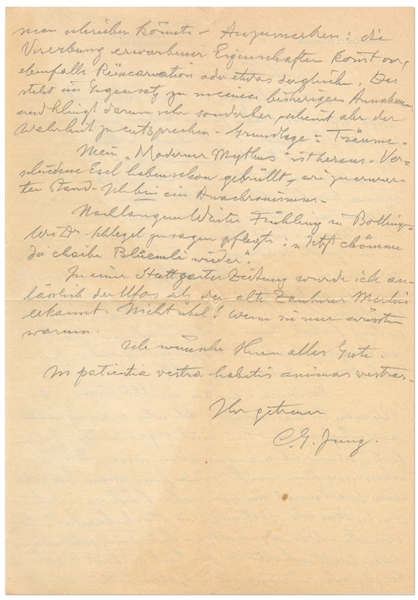 man schreiben könnte – Anzumerken: die
Vererbung erworbener Eigenschaften kommt vor,
ebenfalls Reincarnation oder etwas dergleichen. Das
steht im Gegensatz zu meinen bisherigen Annahmen
und klingt darum sehr sonderbar, scheint aber der
Wahrheit zu entsprechen – Grundlage: Träume.
Mein „Moderner Mythus" ist heraus. Ver-
schiedene Esel haben schon gebrüllt, wie zu erwar-
ten stand. Ich bin ein Anachronismus.
Nach langem Winter Frühling in Bollingen
wie Dr. Schlegel zu sagen pflegte: „Jetzt chömme
die chaibe Blüemli wieder".
In einer Stuttgarter Zeitung wurde ich an-
lässlich der Ufos als der alte Zauberer Merlin
erkannt. Nicht übel! Wenn sie nur wüssten
warum.
Ich wünsche Ihnen alles Gute.
In patientia vestra habetis animas vestras.
Ihr getreuer
C. G. Jung.